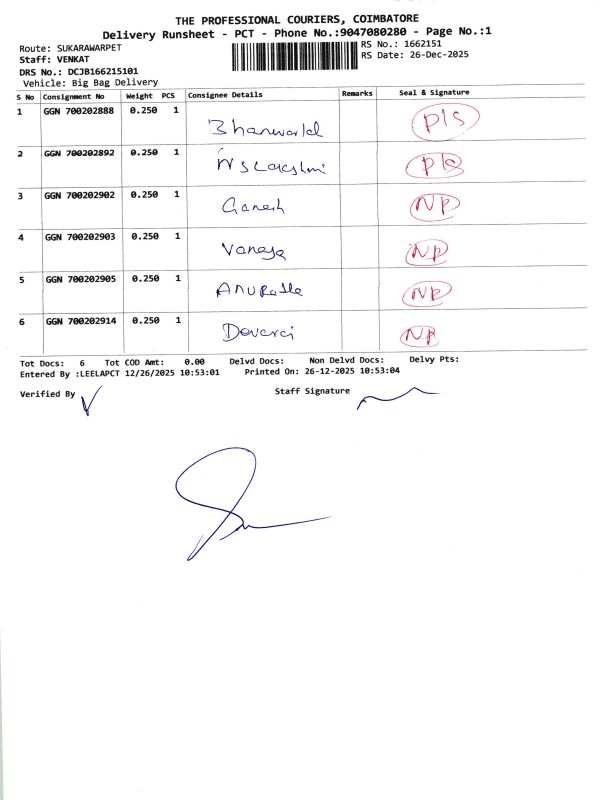 THE PROFESSIONAL COURIERS, COIMBATORE
Delivery Runsheet - PCT - Phone No.:9047080280 - Page No.:1
Route: SUKARAWARPET
RS No.: 1662151
Staff: VENKAT
RS Date: 26-Dec-2025
DRS No.: DCJB166215101
Vehicle: Big Bag Delivery
S No Consignment No Weight PCS Consignee Details Remarks Seal & Signature
1 GGN 700202888 0.250 1 Bhanwarlal P/S
2 GGN 700202892 0.250 1 Lakshmi P/S
3 GGN 700202902 0.250 1 Ganesh NP
4 GGN 700202903 0.250 1 Vanaja NP
5 GGN 700202905 0.250 1 NP
6 GGN 700202914 0.250 1 NP
Tot Docs: 6 Tot COD Amt: 0.00 Delvd Docs: Non Delvd Docs: Delvy Pts:
Entered By :LEELAPCT 12/26/2025 10:53:01 Printed On: 26-12-2025 10:53:04
Verified By Staff Signature